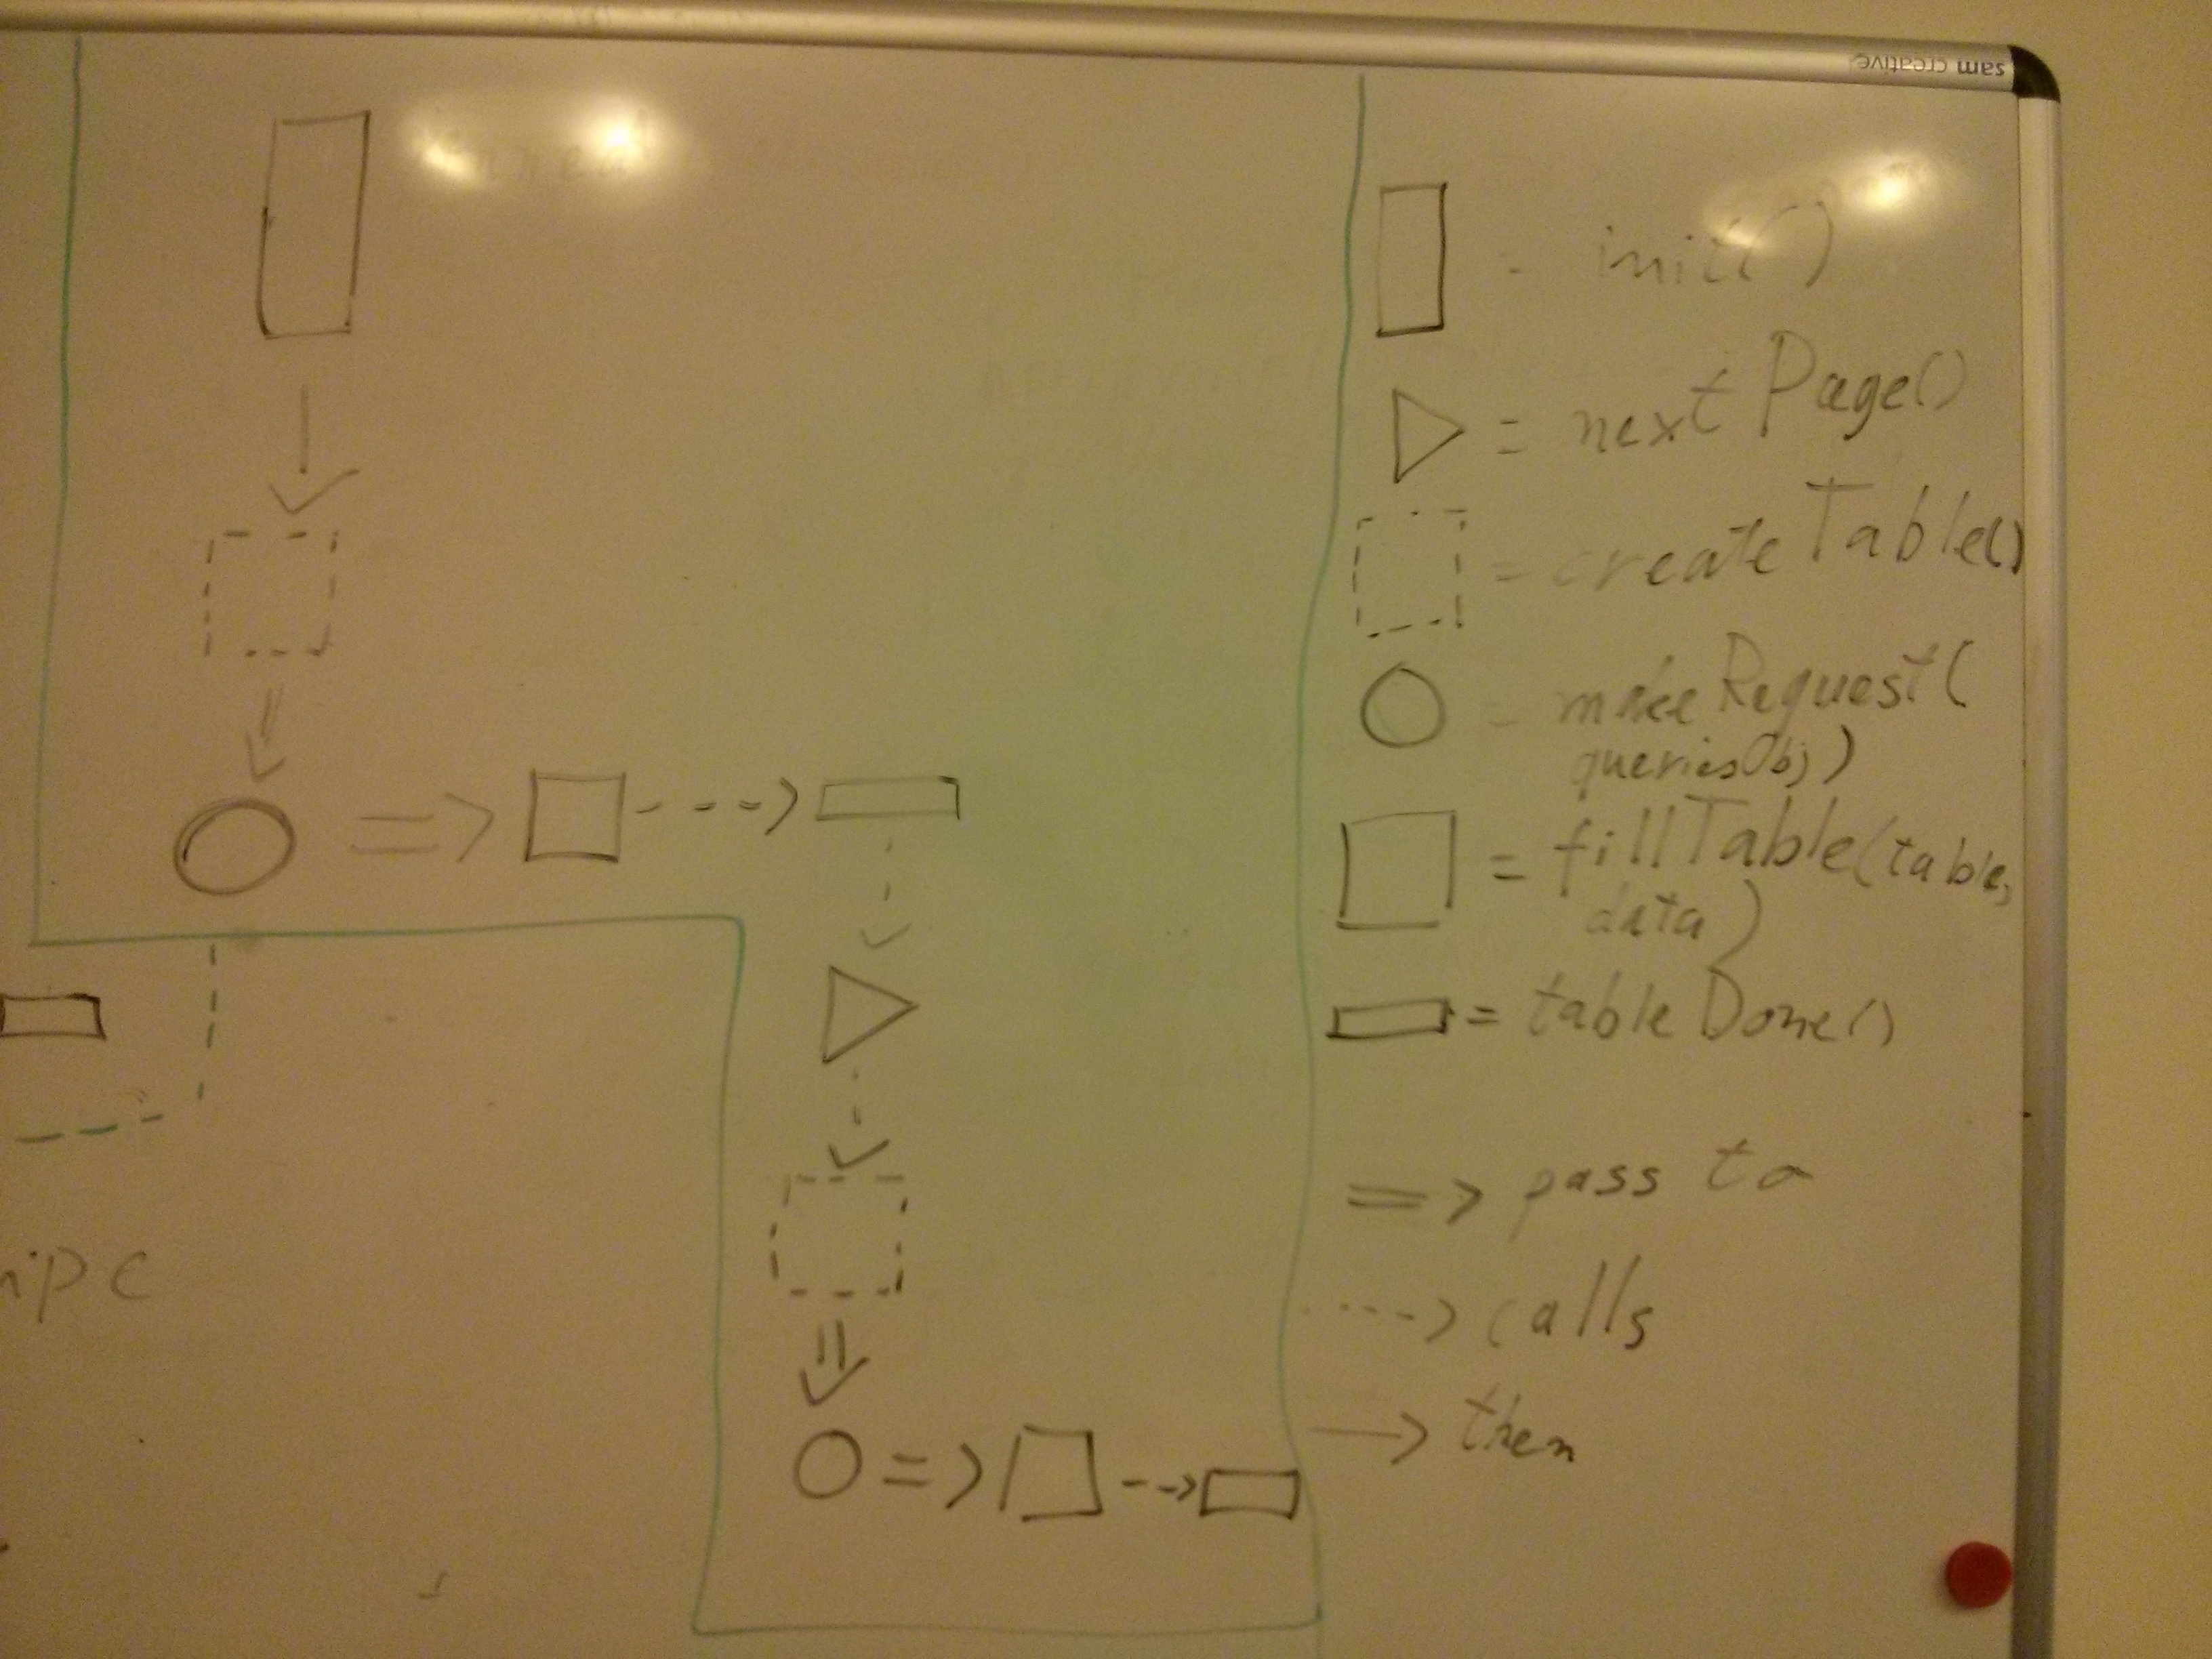 sam creative
- init()
= nextPage()
= createTable()
= makeRequest(
queriesObj)
= fillTable(table,
data)
= tableDone()
=> pass to
----> calls
—> then